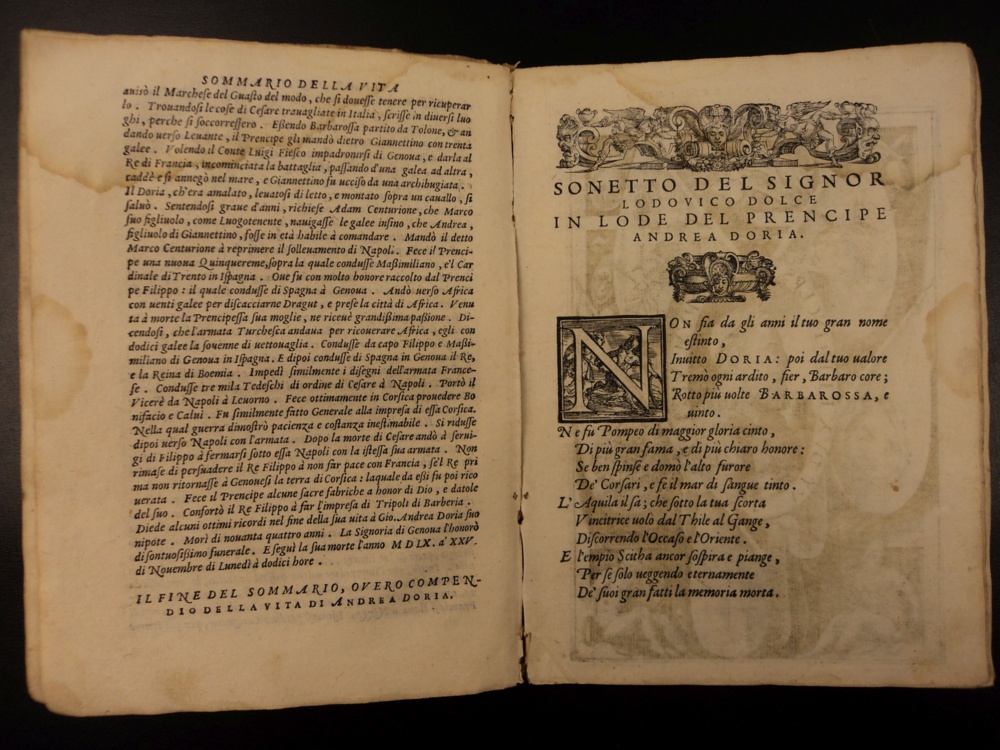 SOMMARIO DELLA VITA
auisò il Marchese del Guasto del modo, che si douesse tenere per ricuperar
lo. Trouandosi le cose di Cesare trauagliate in Italia, scrisse in diuersi luo
ghi, perche si soccorressero. Essendo Barbarossa partito da Tolone, & an
dando uerso Leuante, il Prencipe gli mandò dietro Giannettino con trenta
galee. Volendo il Conte Luigi Fiesco impadronirsi di Genoua, e darla al
Re di Francia, incominciata la battaglia, passando d'una galea ad altra,
caddè e si annegò nel mare, e Giannettino fu ucciso da una archibugiata.
Il Doria, ch'era amalato, leuatosi di letto, e montato sopra un cauallo, si
saluò. Sentendosi graue d'anni, richiese Adam Centurione, che Marco
suo figliuolo, come Luogotenente, nauigasse le galee insino, che Andrea,
figliuolo di Giannettino, fosse in età habile à comandare. Mandò il detto
Marco Centurione à reprimere il solleuamento di Napoli. Fece il Prenci-
pe una nuoua Quinquereme, sopra la quale condusse Massimiliano, e'l Car
dinale di Trento in Ispagna. Oue fu con molto honore raccolto dal Prenci
pe Filippo: il quale condusse di Spagna à Genoua. Andò uerso Africa
con uenti galee per discacciarne Dragut, e prese la città di Africa. Venu
ta à morte la Prencipessa sua moglie, ne riceuè grandissima passione. Di-
cendosi, che l'armata Turchesca andaua per ricouerare Africa, egli con
dodici galee la souenne di uettouaglia. Condusse da capo Filippo e Massi-
miliano di Genoua in Ispagna. E dipoi condusse di Spagna in Genoua il Re,
e la Reina di Boemia. Impedì similmente i disegni dell'armata France-
se. Condusse tre mila Tedeschi di ordine di Cesare à Napoli. Portò il
Vicerè da Napoli à Leuorno. Fece ottimamente in Corsica prouedere Bo
nifacio e Calui. Fu similmente fatto Generale alla impresa di essa Corsica.
Nella qual guerra dimostrò pacienza e costanza inestimabile. Si ridusse
dipoi uerso Napoli con l'armata. Dopo la morte di Cesare andò à serui-
gi di Filippo à fermarsi sotto essa Napoli con la istessa sua armata. Non
rimase di persuadere il Re Filippo à non far pace con Francia, se'l Re pri
ma non ritornasse à Genouesi la terra di Corsica: laquale da essi fu poi rico
uerata. Fece il Prencipe alcune sacre fabriche a honor di Dio, e datole
del suo. Confortò il Re Filippo à far l'impresa di Tripoli di Barberia.
Diede alcuni ottimi ricordi nel fine della sua vita à Gio. Andrea Doria suo
nipote. Morì di nouanta quattro anni. La Signoria di Genoua l'honorò
di sontuosissimo funerale. E seguì la sua morte l'anno M D LX. a' XXV.
di Nouembre di Lunedì à dodici hore.
IL FINE DEL SOMMARIO, OVERO COMPEN-
DIO DELLA VITA DI ANDREA DORIA.
SONETTO DEL SIGNOR
LODOVICO DOLCE
IN LODE DEL PRENCIPE
ANDREA DORIA.
NON sia da gli anni il tuo gran nome
estinto,
Inuitto DORIA: poi dal tuo ualore
Tremò ogni ardito, fier, Barbaro core;
Rotto più uolte BARBAROSSA, e
uinto.
Ne fu Pompeo di maggior gloria cinto,
Di più gran fama, e di più chiaro honore:
Se ben spinse e domò l'alto furore
De' Corsari, e fè il mar di sangue tinto.
L'Aquila il sa; che sotto la tua scorta
Vincitrice uolo dal Thile al Gange,
Discorrendo l'Occaso e l'Oriente.
E l'empio Scitha ancor sospira e piange,
Per se solo ueggendo eternamente
De' suoi gran fatti la memoria morta.